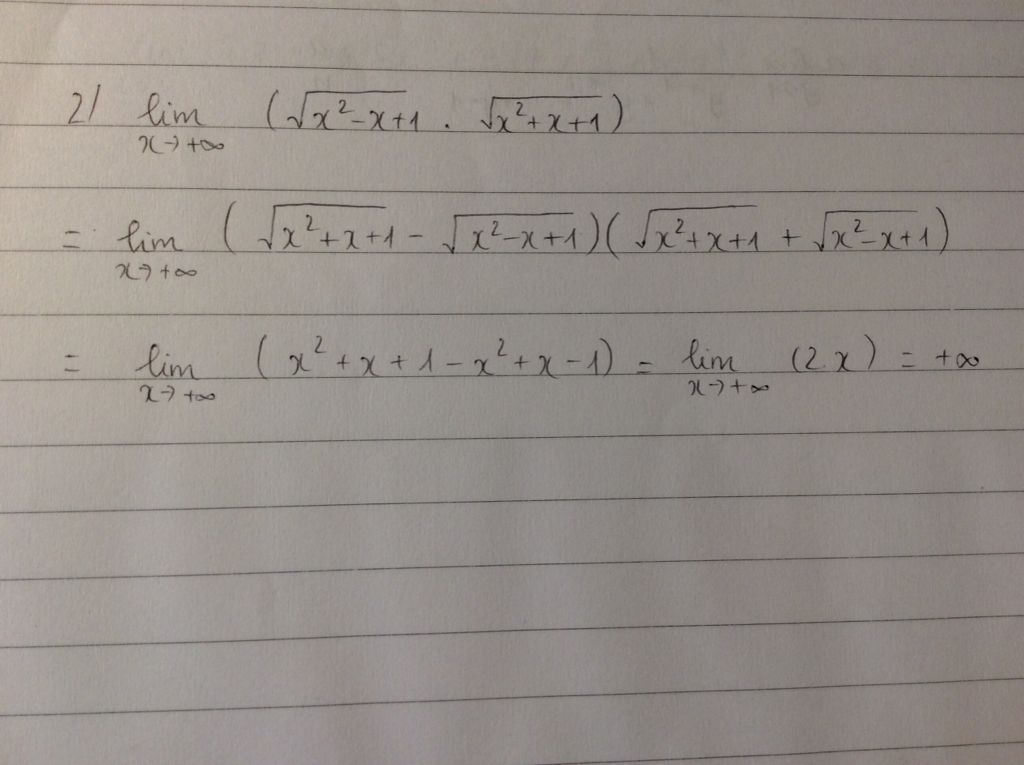 2/ lim x→+∞ (√(x²-x+1) . √(x²+x+1))
= lim x→+∞ (√(x²+x+1) - √(x²-x+1))(√(x²+x+1) + √(x²-x+1))
= lim x→+∞ (x²+x+1-x²+x-1) = lim x→+∞ (2x) = +∞